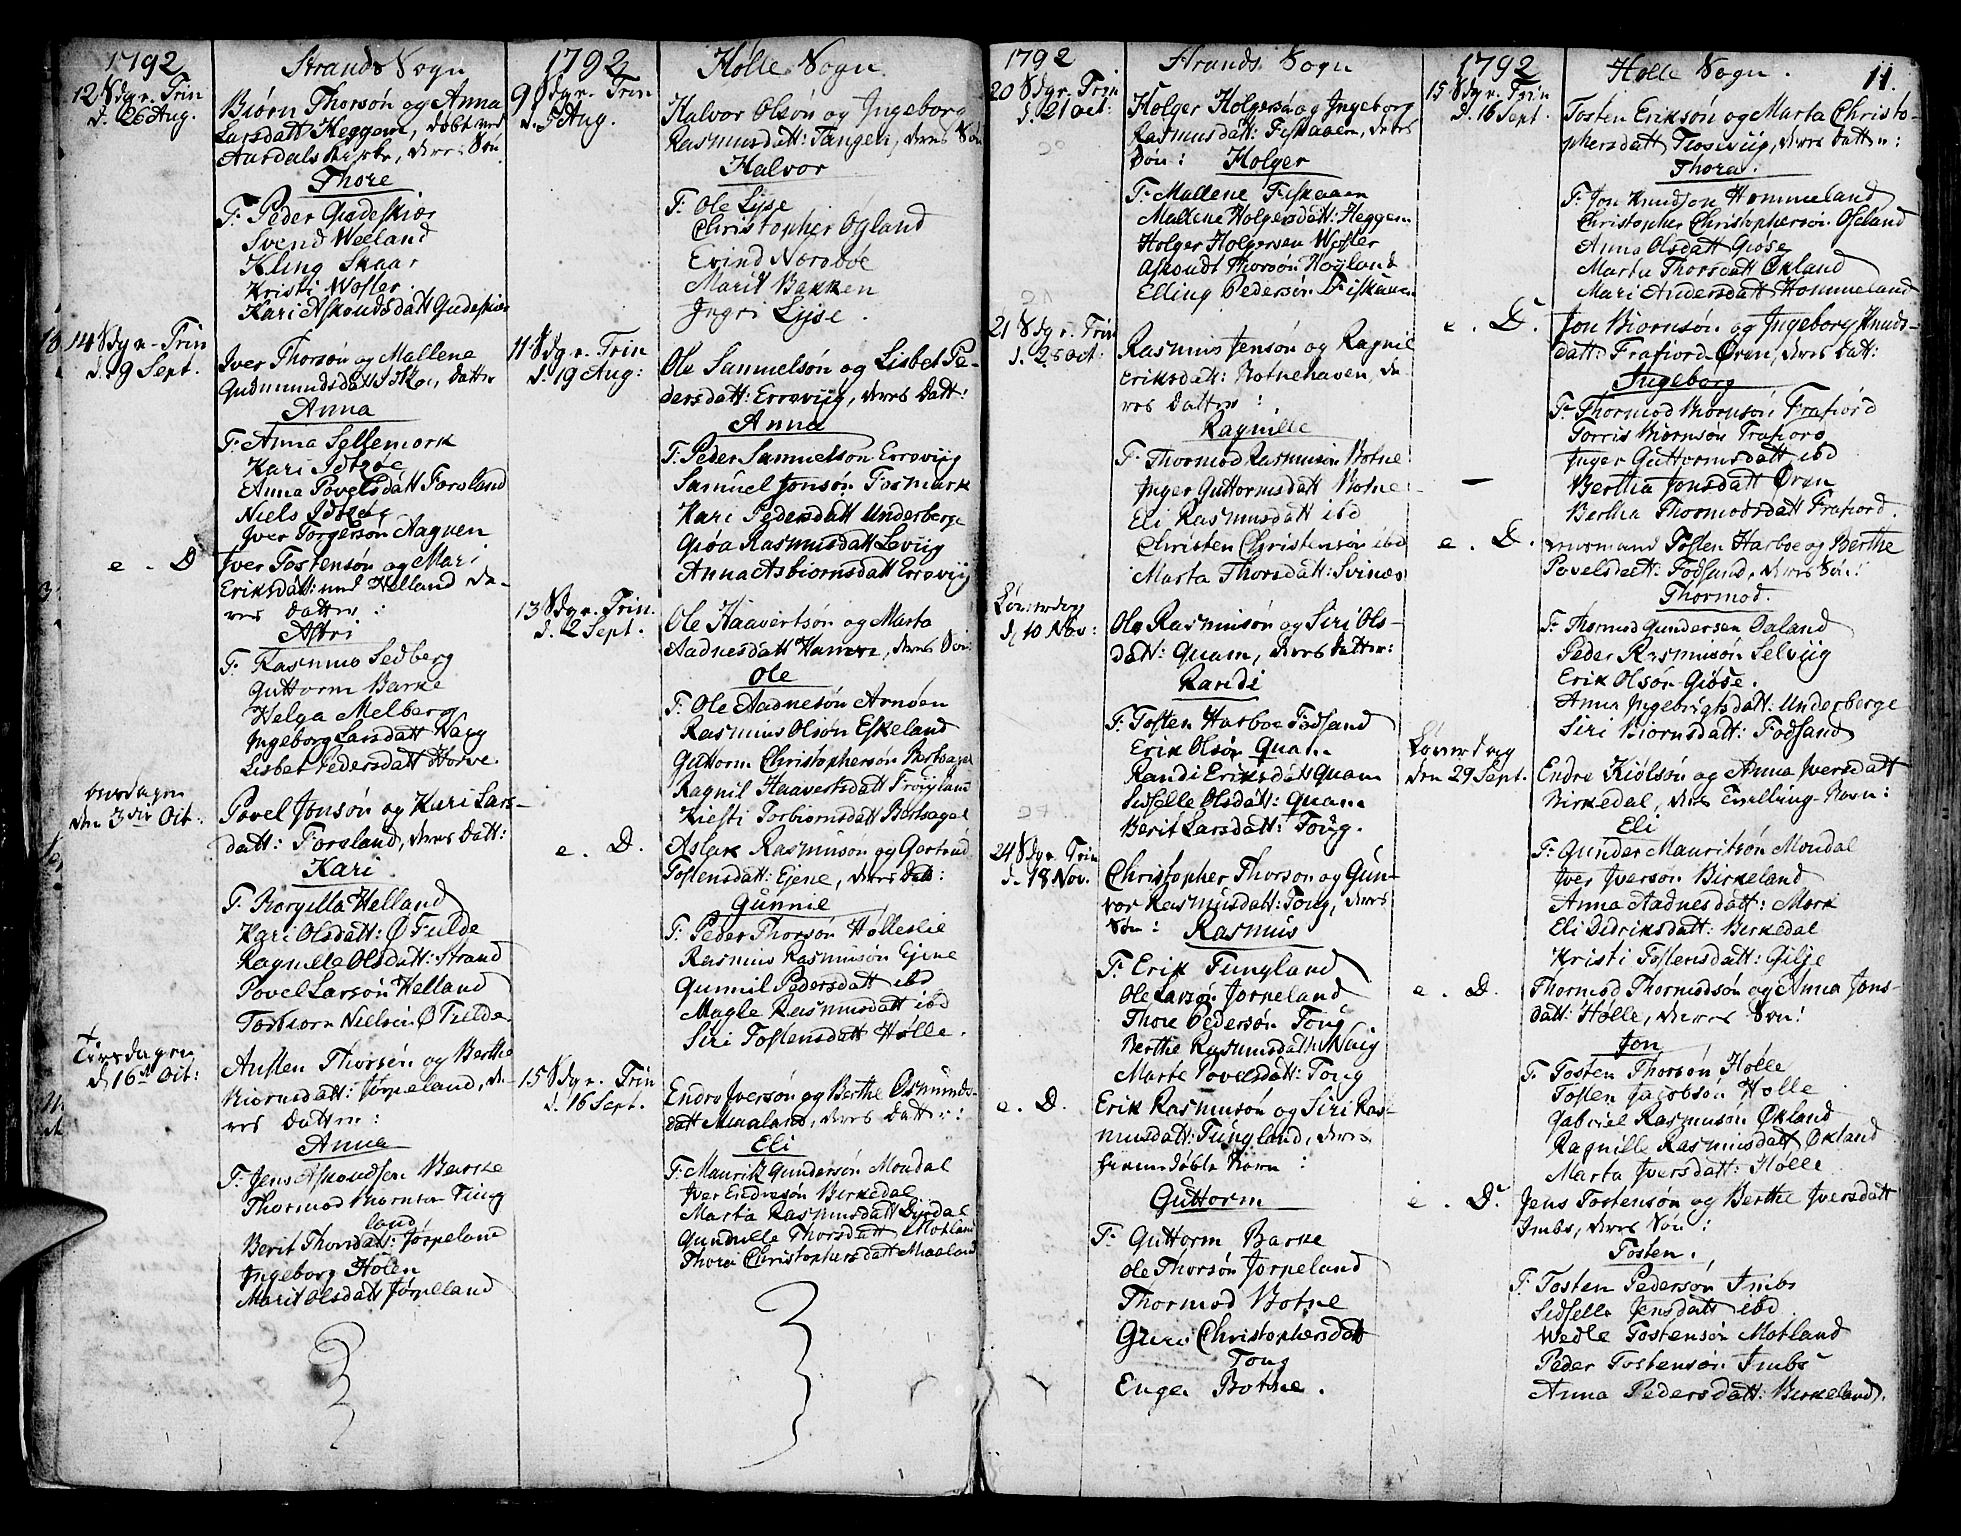 1792
Strands Sogn
12 Sdg. e. Trin
d. 26 Aug.
Biørn Thorsøn og Anna
Larsdatt Heggem, døbt ved
Aardals Kirke, deres Søn
Thore
F. Peder Gudeskiær
Svend Weeland
Kling Skaar
Kristi Wosler
Kari Askoudsdatt Gudeskiær
14 Sdg. e. Trin
d. 9 Sept.
Iver Thorsøn og Mallene
Gudmundsdatt Idsøe, Datter
Anna
F. Anna Sellemork
Kari Idtzøe
Anna Povelsdatt Forsland
Niels Idtzøe
Iver Torgersøn
e. D
Iver Tostensøn og Mari
Eriksdatt: Helland de-
res Datter:
Astri
F. Rasmus Sedberg
Guttorm Barke
Helga Melberg
Ingeborg Larsdatt Waag
Lisbet Pedersdatt Horve
den 3die Oct:
Povel Jonsøn og Kari Lars-
datt: Forsland, deres Datt:
Kari
F. Borgilla Helland
Kari Olsdatt: Ø Fulde
Ragnille Olsdatt: Strand
Povel Larsøn Helland
Torbiørn Nielsen Ø Fulde
Tirsdagen
d. 16de Oct:
Austen Thorsøn og Berthe
Biørnsdatt: Jørpeland, de-
res Datter:
Anna
F. Jens Askoudsen Barke
Thormod Thormsen Tung
land
Berit Thorsdatt: Jørpeland
Ingeborg Holen
Marit Olsdatt Jørpeland
1792
Holle Sogn
9 Sdg. e. Trin
d. 5 Aug.
Halvor Olsøn og Ingeborg
Rasmusdatt: Tangen, deres Søn
Halvor
F. Ole Lyse
Christopher Øgland
Evind Nærebøe
Marit Bakken
Ingri Lyse.
11 Sdg. e. Trin
d. 19 Aug:
Ole Samuelsøn og Lisbet Pe-
dersdatt: Erreviig, deres Datt:
Anna
F. Peder Samuelsøn Erreviig
Samuel Jonsøn Fosmark
Kari Pedersdatt Underberge
Giøa Rasmusdatt Leviig
Anna Asbiørnsdatt Erreviig
13 Sdg. e. Trin.
d. 2 Sept.
Ole Haavertsøn og Marta
Aadnesdatt Hamre, deres Søn:
Ole
F. Ole Aadnesøn Arnøen
Rasmus Olsøn Eskeland
Guttorm Christophersøn Bertsagel
Ragnil Haavertsdatt Frøyland
Kiesti Torbiørnsdatt Bertsagel
e. D.
Aslak Rasmusøn og Gertrud
Tostensdatt: Ejene, deres Datt:
Gunnil
F. Peder Thorsøn Holleslie
Rasmus Rasmusøn Ejene
Gunnil Pedersdatt ibd
Magle Rasmusdatt ibd
Siri Tostensdatt Holle.
15 Sdg. e. Trin
d. 16 Sept.
Endre Iversøn og Berthe Osmunds-
datt Maaland, deres Datter:
Eli
F. Mauritz Gundersøn Mondal
Iver Endresøn Birkedal
Marta Rasmusdatt Lysdal
Gundille Thorsdatt Motland
Thora Christophersdatt Maaland
1792
Strands Sogn
20 Sdg. e. Trin
d. 21 Oct:
Holger Holgersøn og Ingeborg
Rasmusdatt: Fiskaaen, deres
Søn: Holger
F. Mallene Fiskaaen
Mallene Holgersdatt: Heggem
Holger Holgersen Wosler
Askoudt Thorsøn Høyland
Elling Pedersøn Fiskaaen
21 Sdg. e. Trin
d. 28 Oct:
Rasmus Jensøn og Ragnil
Eriksdatt: Botnehaven, de-
res Datter:
Ragnille
F. Thormod Rasmusøn Botne
Inger Guttormsdatt Botne
Eli Rasmusdatt ibd
Christen Christensøn ibd
Marta Thorsdatt: Svinæs
Løverdag
d. 10 Nov:
Ole Rasmusøn og Siri Ols-
datt: Quam, deres Datter:
Randi
F. Tosten Harboe Fodsand
Erik Olsøn Quam
Randi Eriksdatt Quam
Sidselle Olsdatt: Quam
Berit Larsdatt: Toug.
24 Sdg. e. Trin
d. 18 Nov.
Christopher Thorsøn og Gun-
vor Rasmusdatt: Toug, deres
Søn: Rasmus
F. Erik Tungland
Ole Larsøn Jørpeland
Thore Pedersøn Toug
Berthe Rasmusdatt:
Marte Povelsdatt: Toug
e. D.
Erik Rasmusøn og Siri Ras-
musdatt: Tungland, deres
hiemmedøbte Barn:
Guttorm
F. Guttorm Barke
Ole Thorsøn Jørpeland
Thormod Botne
Guri Christophersdatt
Toug
Engel Botne.
1792
Holle Sogn.
11.
15 Sdg. e. Trin
d. 16 Sept.
Tosten Eriksøn og Marta Christo-
phersdatt, deres Datter:
Thora.
F. Jon Knudsøn Hommeland
Christopher Christophersøn Oseland
Anna Olsdatt Giøse
Marta Thorsdatt Økland
Mari Andersdatt Hommeland
e. D.
Jon Biørnsøn og Ingeborg Knuds-
datt: Frafiord Øren, deres Datt:
Ingeborg
F. Thormod Biørnsøn Frafiord
Torris Biørnsøn Frafiord
Inger Guttormsdatt ibd
Bertha Jonsdatt Øren
Bertha Thormodsdatt Frafiord.
e. D.
Tosten Harboe og Berthe
Povelsdatt: Fodsand, deres Søn:
Thormod.
F. Thormod Gundersen Daland
Peder Rasmusøn Selviig
Erik Olsøn Giøse.
Anna Ingebrigtsdatt: Underberge
Siri Biørnsdatt: Fodsand
Løverdag
den 29 Sept.
Endre Kiølsøn og Anna Iversdatt
Birkedal, deres Tvilling-Børn:
Eli
F. Gunder Mauritsøn Mondal
Iver Iversøn Birkeland
Anna Aadnesdatt: Mork
Eli Didriksdatt: Birkedal
Kristi Tostensdatt: Gilje
e. D.
Thormod Thormodsøn og Anna Jons-
datt: Holle, deres Søn:
Jon
F. Tosten Thorsøn Holle
Tosten Jacobsøn Holle
Gabriel Rasmusøn Økland
Ragnille Rasmusdatt Økland
Marta Iversdatt: Holle
e. D.
Jens Tostensøn og Berthe Iversdatt
Imbs, deres Søn:
Tosten.
F. Tosten Pedersøn Imbs
Sidselle Jensdatt ibd
Wedle Tostensøn Motland
Peder Tostensøn Imbs
Anna Pedersdatt: Birkeland.